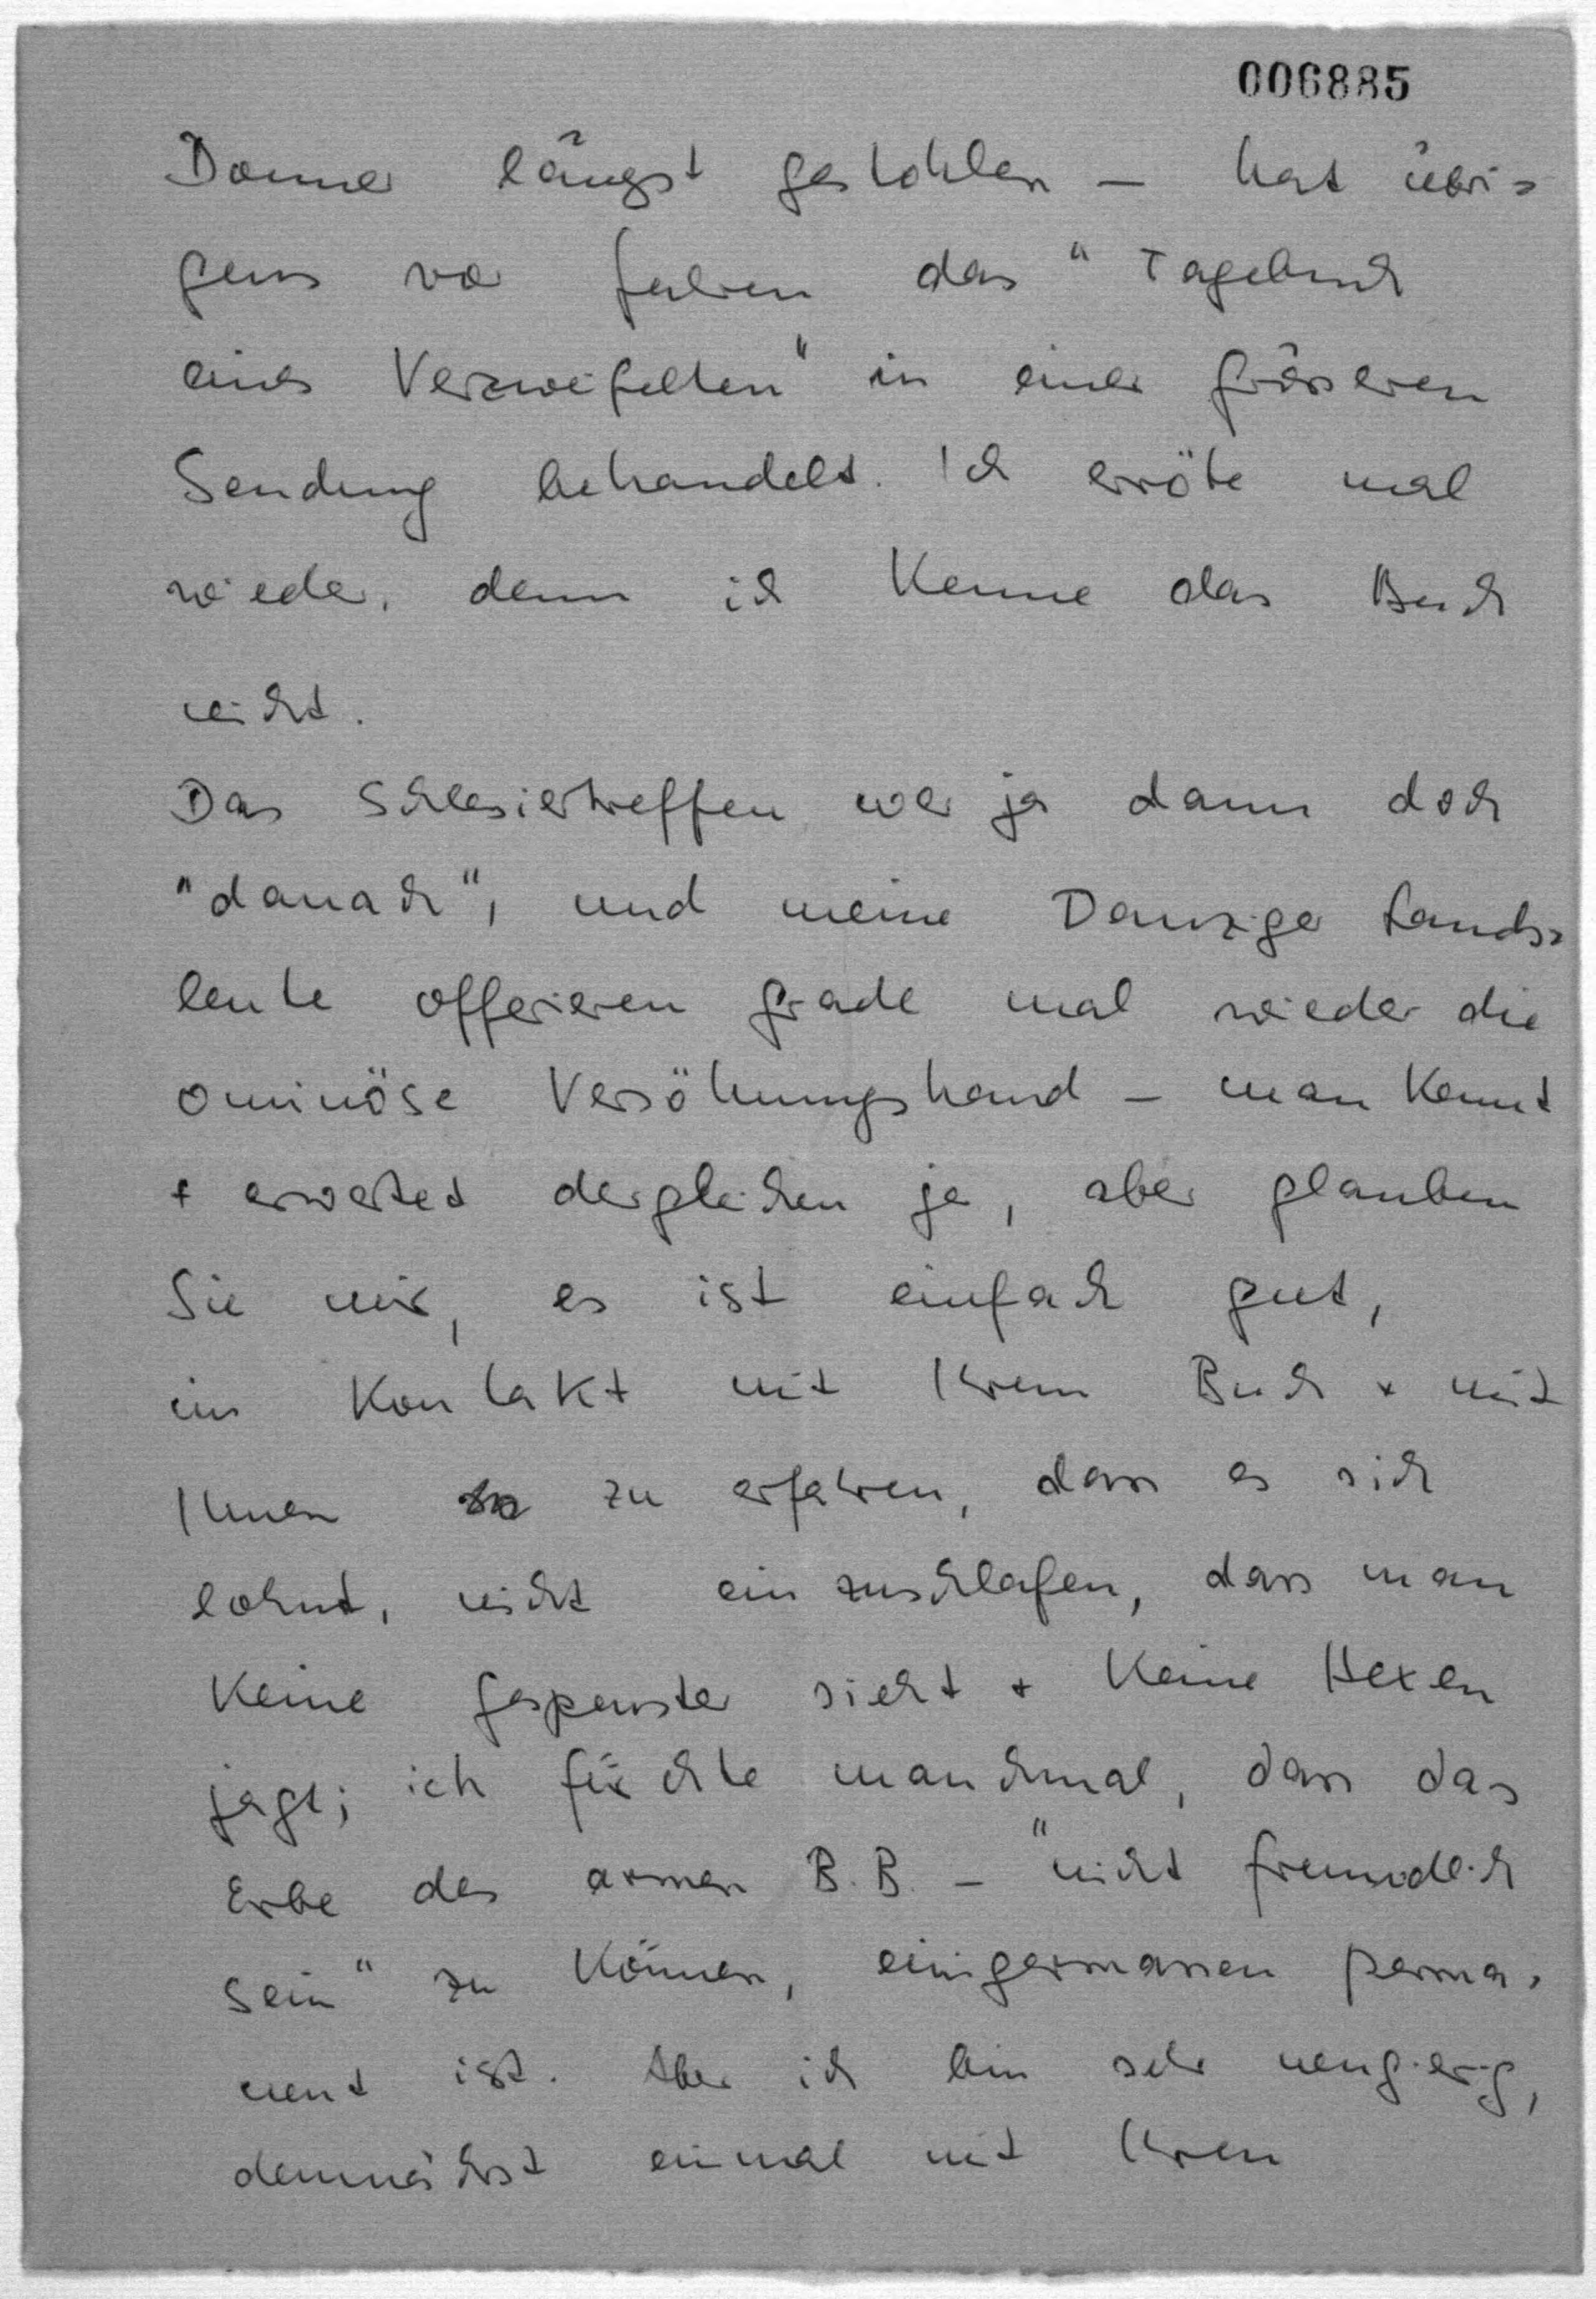 006885
Donner längst gestohlen – hat übri=
gens vor Jahren das "Tagebuch
eines Verzweifelten" in einer grösseren
Sendung behandelt. Ich erröte mal
wieder, denn ich kenne das Buch
nicht.
Das Schlesiertreffen war ja dann doch
"danach", und meine Danziger Lands=
leute offerieren grade mal wieder die
ominöse Versöhnungshand – man kennt
+ erwartet dergleichen ja, aber glauben
Sie mir, es ist einfach gut,
im Kontakt mit Ihrem Buch + mit
Ihnen zu erfahren, dass es sich
lohnt, nicht einzuschlafen, dass man
keine Gespenster sieht + keine Hexen
jagt; ich fürchte manchmal, dass das
Erbe des armen B.B. – "nicht freundlich
sein" zu können, einigermassen perma=
nent ist. Aber ich bin sehr neugierig,
demnächst einmal mit Ihren